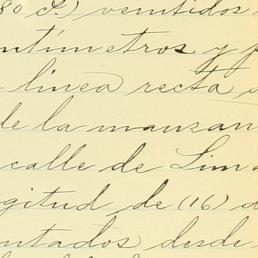 80 c.) veintidos
ntímetros y p
linea recta
de la manzan
calle de Lima
gitud, de (16) d
ntados desde